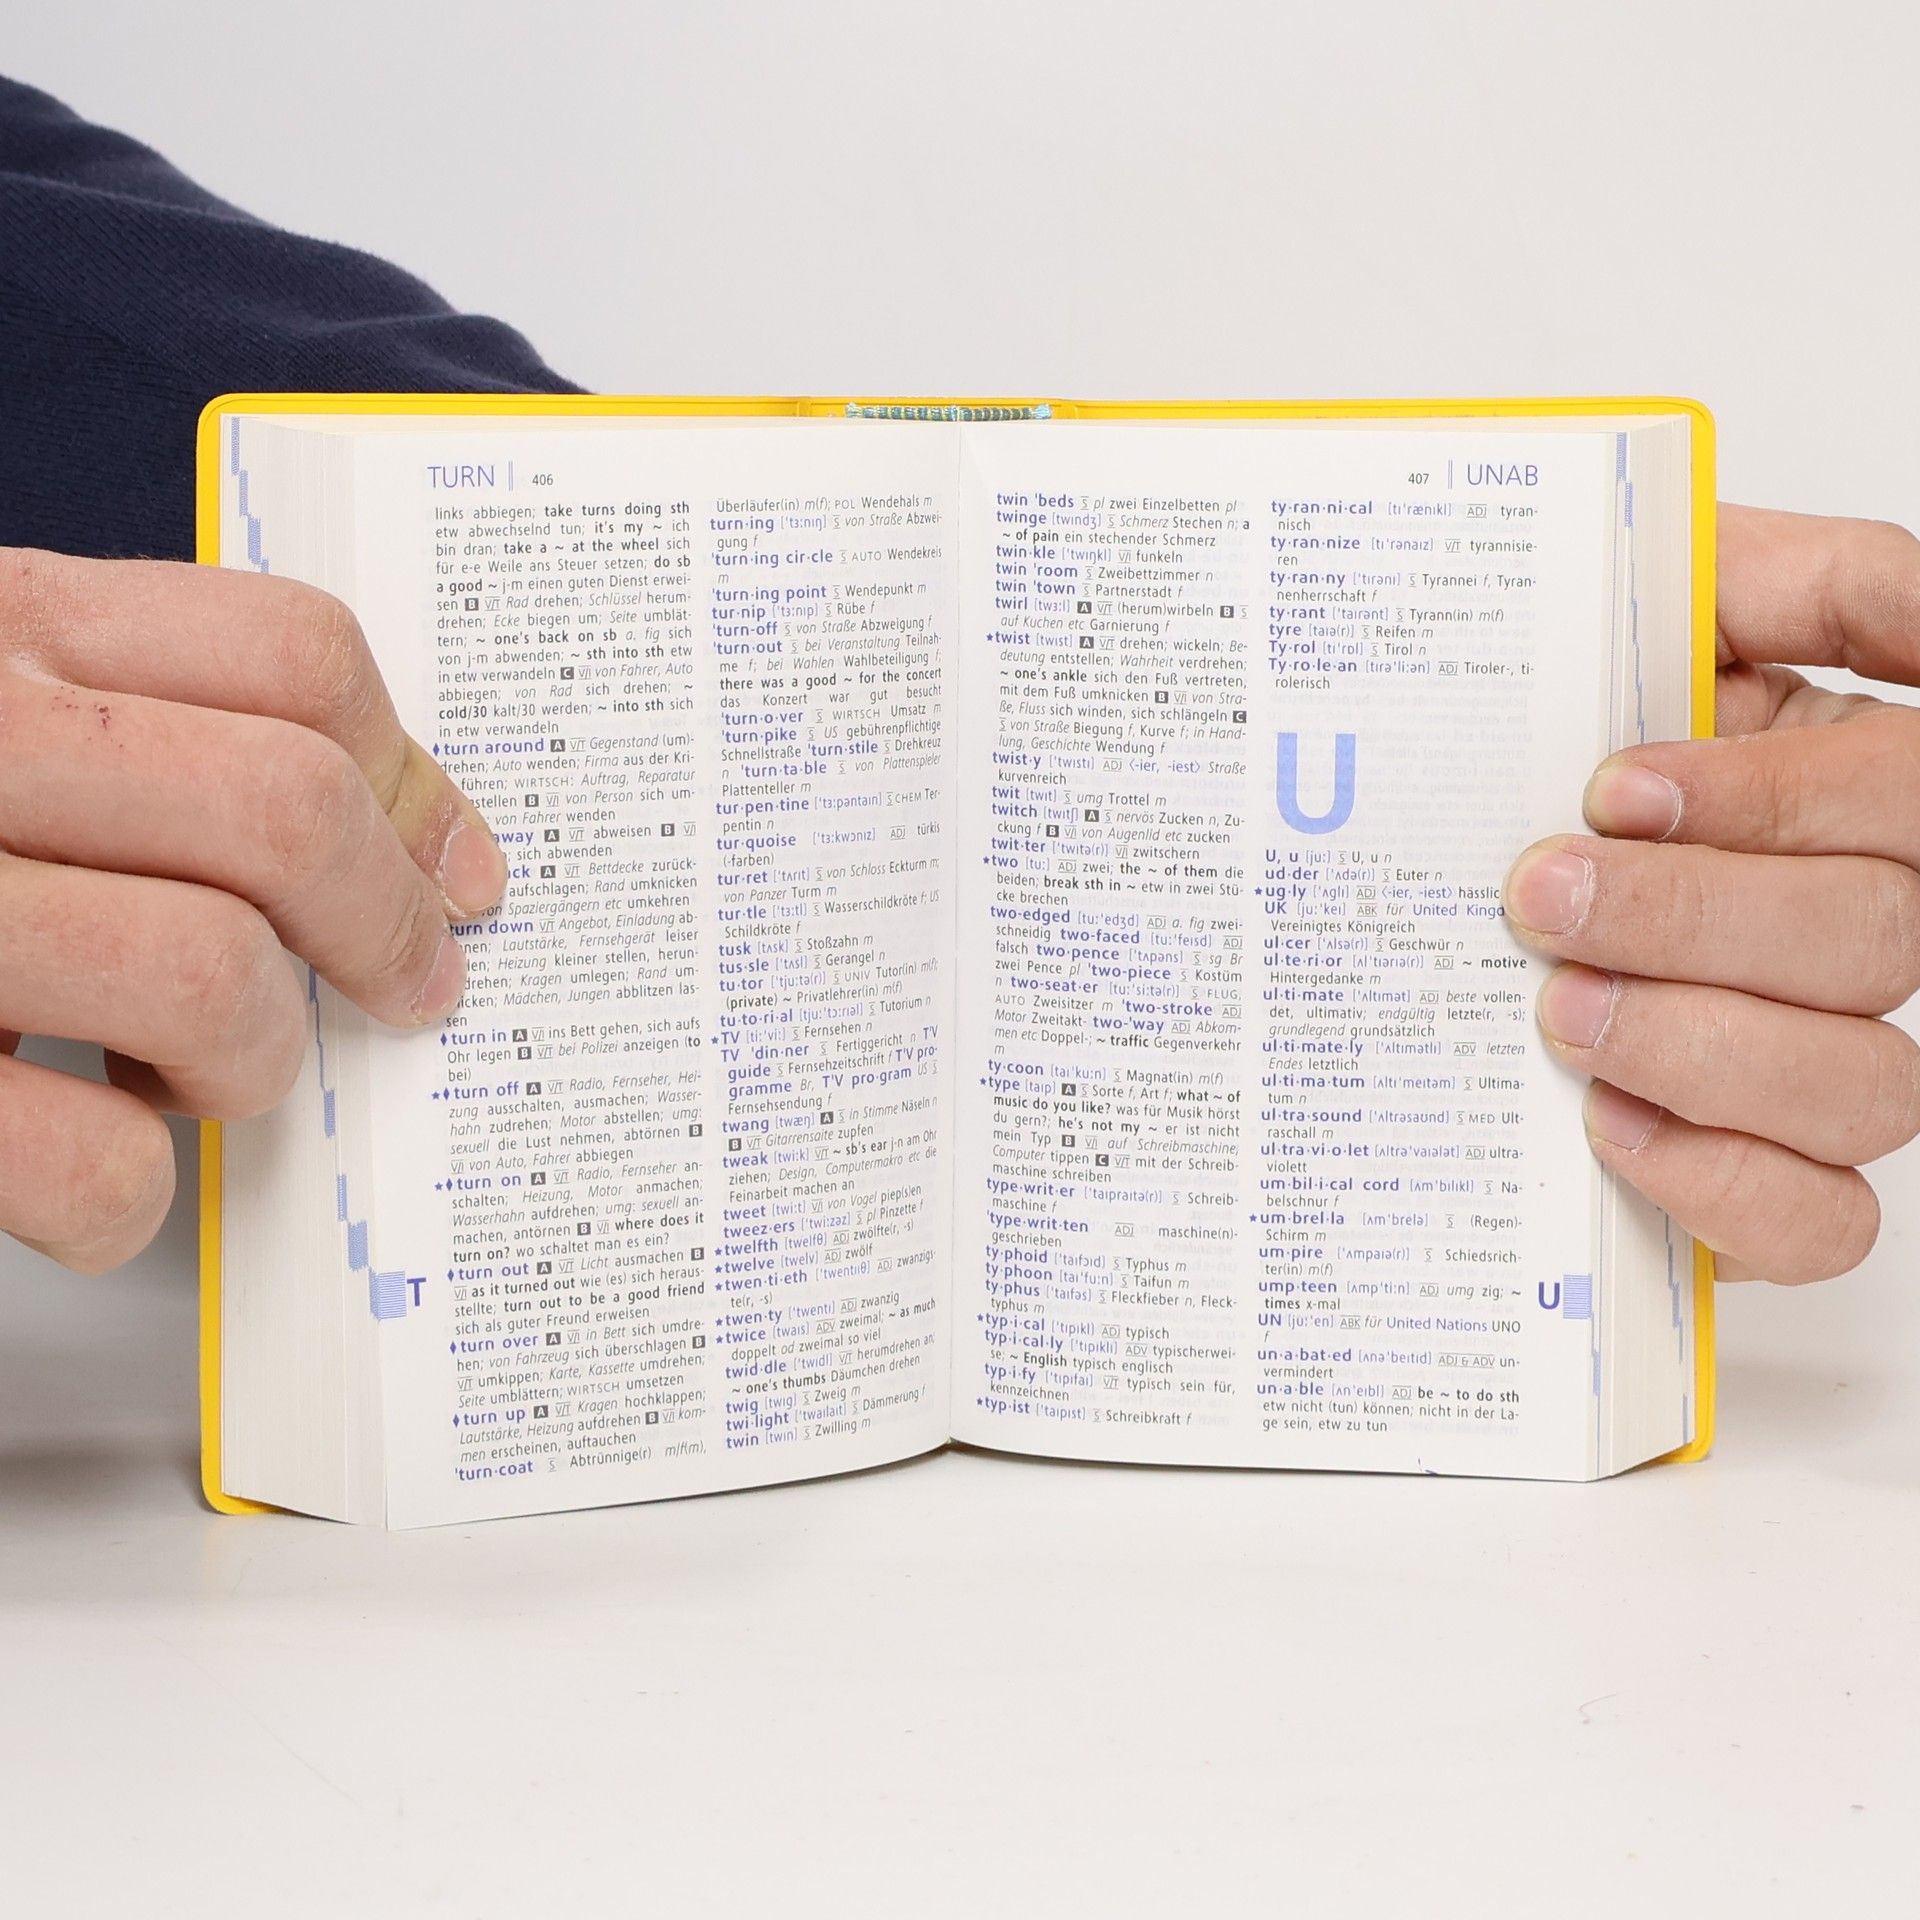 TURN 406
links abbiegen; take turns doing sth
etw abwechselnd tun; it's my ~ ich
bin dran; take a ~ at the wheel sich
für e-e Weile ans Steuer setzen; do sb
a good ~ j-m einen guten Dienst erwei-
sen B V/T Rad drehen; Schlüssel herum-
drehen; Ecke biegen um; Seite umblät-
tern; ~ one's back on sb a. fig sich
von j-m abwenden; ~ sth into sth etw
in etw verwandeln C V/I von Fahrer, Auto
abbiegen; von Rad sich drehen; ~
cold/30 kalt/30 werden; ~ into sth sich
in etw verwandeln
♦turn around A V/T Gegenstand (um)-
drehen; Auto wenden; Firma aus der Kri-
führen; WIRTSCH: Auftrag, Reparatur
stellen B V/I von Person sich um-
von Fahrer wenden
away A V/T abweisen B V/I
sich abwenden
A V/T Bettdecke zurück-
aufschlagen; Rand umknicken
von Spaziergängern etc umkehren
turn down V/T Angebot, Einladung ab-
Lautstärke, Fernsehgerät leiser
Heizung kleiner stellen, herun-
drehen; Kragen umlegen; Rand um-
Mädchen, Jungen abblitzen las-
sen
♦turn in A V/I ins Bett gehen, sich aufs
Ohr legen B V/T bei Polizei anzeigen (to
bei)
★♦turn off A V/T Radio, Fernseher, Hei-
zung ausschalten, ausmachen; Wasser-
hahn zudrehen; Motor abstellen; umg:
sexuell die Lust nehmen, abtörnen B
V/I von Auto, Fahrer abbiegen
★♦turn on A V/T Radio, Fernseher an-
schalten; Heizung, Motor anmachen;
Wasserhahn aufdrehen; umg: sexuell an-
machen, antörnen B V/I where does it
turn on? wo schaltet man es ein?
♦turn out A V/T Licht ausmachen B
V/I as it turned out wie (es) sich heraus-
stellte; turn out to be a good friend
sich als guter Freund erweisen
♦turn over A V/I in Bett sich umdre-
hen; von Fahrzeug sich überschlagen B
V/T umkippen; Karte, Kassette umdrehen;
Seite umblättern; WIRTSCH umsetzen
♦turn up A V/T Kragen hochklappen;
Lautstärke, Heizung aufdrehen B V/I kom-
men erscheinen, auftauchen
'turn·coat S Abtrünnige(r) m/f(m),
T
Überläufer(in) m(f); POL Wendehals m
turn·ing ['tɜːnɪŋ] S von Straße Abzwei-
gung f
'turn·ing cir·cle S AUTO Wendekreis
m
'turn·ing point S Wendepunkt m
tur·nip ['tɜːnɪp] S Rübe f
'turn-off S von Straße Abzweigung f
'turn·out S bei Veranstaltung Teilnah-
me f; bei Wahlen Wahlbeteiligung f;
there was a good ~ for the concert
das Konzert war gut besucht
'turn·o·ver S WIRTSCH Umsatz m
'turn·pike S US gebührenpflichtige
Schnellstraße 'turn·stile S Drehkreuz
n 'turn·ta·ble S von Plattenspieler
Plattenteller m
tur·pen·tine ['tɜːpəntaɪn] S CHEM Ter-
pentin n
tur·quoise ['tɜːkwɔɪz] ADJ türkis
(-farben)
tur·ret ['tʌrɪt] S von Schloss Eckturm m;
von Panzer Turm m
tur·tle ['tɜːtl] S Wasserschildkröte f; US
Schildkröte f
tusk [tʌsk] S Stoßzahn m
tus·sle ['tʌsl] S Gerangel n
tu·tor ['tjuːtə(r)] S UNIV Tutor(in) m(f);
(private) ~ Privatlehrer(in) m(f)
tu·to·ri·al [tjuː'tɔːrɪəl] S Tutorium n
★TV [tiː'viː] S Fernsehen n
TV 'din·ner S Fertiggericht n T'V
guide S Fernsehzeitschrift f T'V pro-
gramme Br, T'V pro·gram US S
Fernsehsendung f
twang [twæŋ] A S in Stimme Näseln n
B V/T Gitarrensaite zupfen
tweak [twiːk] V/T ~ sb's ear j-n am Ohr
ziehen; Design, Computermakro etc die
Feinarbeit machen an
tweet [twiːt] V/I von Vogel piep(s)en
tweez·ers ['twiːzəz] S pl Pinzette f
★twelfth [twelfθ] ADJ zwölfte(r, -s)
★twelve [twelv] ADJ zwölf
★twen·ti·eth ['twentɪɪθ] ADJ zwanzigs-
te(r, -s)
★twen·ty ['twentɪ] ADJ zwanzig
★twice [twaɪs] ADV zweimal; ~ as much
doppelt od zweimal so viel
twid·dle ['twɪdl] V/T herumdrehen an;
~ one's thumbs Däumchen drehen
twig [twɪg] S Zweig m
twi·light ['twaɪlaɪt] S Dämmerung f
twin [twɪn] S Zwilling m
407 UNAB
twin 'beds S pl zwei Einzelbetten pl
twinge [twɪndʒ] S Schmerz Stechen n; a
~ of pain ein stechender Schmerz
twin·kle ['twɪŋkl] V/I funkeln
twin 'room S Zweibettzimmer n
twin 'town S Partnerstadt f
twirl [twɜːl] A V/T (herum)wirbeln B S
auf Kuchen etc Garnierung f
★twist [twɪst] A V/T drehen; wickeln; Be-
deutung entstellen; Wahrheit verdrehen;
~ one's ankle sich den Fuß vertreten,
mit dem Fuß umknicken B V/I von Stra-
ße, Fluss sich winden, sich schlängeln C
S von Straße Biegung f, Kurve f; in Hand-
lung, Geschichte Wendung f
twist·y ['twɪstɪ] ADJ ⟨-ier, -iest⟩ Straße
kurvenreich
twit [twɪt] S umg Trottel m
twitch [twɪtʃ] A S nervös Zucken n, Zu-
ckung f B V/I von Augenlid etc zucken
twit·ter ['twɪtə(r)] V/I zwitschern
★two [tuː] ADJ zwei; the ~ of them die
beiden; break sth in ~ etw in zwei Stü-
cke brechen
two-edged [tuː'edʒd] ADJ a. fig zwei-
schneidig two-faced [tuː'feɪsd] ADJ
falsch two·pence ['tʌpəns] S sg Br
zwei Pence pl 'two-piece S Kostüm
n two-seat·er [tuː'siːtə(r)] S FLUG,
AUTO Zweisitzer m 'two-stroke ADJ
Motor Zweitakt- two-'way ADJ Abkom-
men etc Doppel-; ~ traffic Gegenverkehr
m
ty·coon [taɪ'kuːn] S Magnat(in) m(f)
★type [taɪp] A S Sorte f, Art f; what ~ of
music do you like? was für Musik hörst
du gern?; he's not my ~ er ist nicht
mein Typ B V/I auf Schreibmaschine;
Computer tippen C V/T mit der Schreib-
maschine schreiben
type·writ·er ['taɪpraɪtə(r)] S Schreib-
maschine f
'type·writ·ten ADJ maschine(n)-
geschrieben
ty·phoid ['taɪfɔɪd] S Typhus m
ty·phoon [taɪ'fuːn] S Taifun m
ty·phus ['taɪfəs] S Fleckfieber n, Fleck-
typhus m
★typ·i·cal ['tɪpɪkl] ADJ typisch
typ·i·cal·ly ['tɪpɪklɪ] ADV typischerwei-
se; ~ English typisch englisch
typ·i·fy ['tɪpɪfaɪ] V/T typisch sein für,
kennzeichnen
★typ·ist ['taɪpɪst] S Schreibkraft f
ty·ran·ni·cal [tɪ'rænɪkl] ADJ tyran-
nisch
ty·ran·nize ['tɪrənaɪz] V/T tyrannisie-
ren
ty·ran·ny ['tɪrənɪ] S Tyrannei f, Tyran-
nenherrschaft f
ty·rant ['taɪrənt] S Tyrann(in) m(f)
tyre [taɪə(r)] S Reifen m
Ty·rol [tɪ'rɒl] S Tirol n
Ty·ro·le·an [tɪrə'liːən] ADJ Tiroler-, ti-
rolerisch
U
U, u [juː] S U, u n
ud·der ['ʌdə(r)] S Euter n
★ug·ly ['ʌglɪ] ADJ ⟨-ier, -iest⟩ hässlic
UK [juː'keɪ] ABK für United Kingd
Vereinigtes Königreich
ul·cer ['ʌlsə(r)] S Geschwür n
ul·te·ri·or [ʌl'tɪərɪə(r)] ADJ ~ motive
Hintergedanke m
ul·ti·mate ['ʌltɪmət] ADJ beste vollen-
det, ultimativ; endgültig letzte(r, -s);
grundlegend grundsätzlich
ul·ti·mate·ly ['ʌltɪmətlɪ] ADV letzten
Endes letztlich
ul·ti·ma·tum [ʌltɪ'meɪtəm] S Ultima-
tum n
ul·tra·sound ['ʌltrəsaʊnd] S MED Ult-
raschall m
ul·tra·vi·o·let [ʌltrə'vaɪələt] ADJ ultra-
violett
um·bil·i·cal cord [ʌm'bɪlɪkl] S Na-
belschnur f
★um·brel·la [ʌm'brelə] S (Regen)-
Schirm m
um·pire ['ʌmpaɪə(r)] S Schiedsrich-
ter(in) m(f)
ump·teen [ʌmp'tiːn] ADJ umg zig; ~
times x-mal
UN [juː'en] ABK für United Nations UNO
f
un·a·bat·ed [ʌnə'beɪtɪd] ADJ & ADV un-
vermindert
un·a·ble [ʌn'eɪbl] ADJ be ~ to do sth
etw nicht (tun) können; nicht in der La-
ge sein, etw zu tun
U